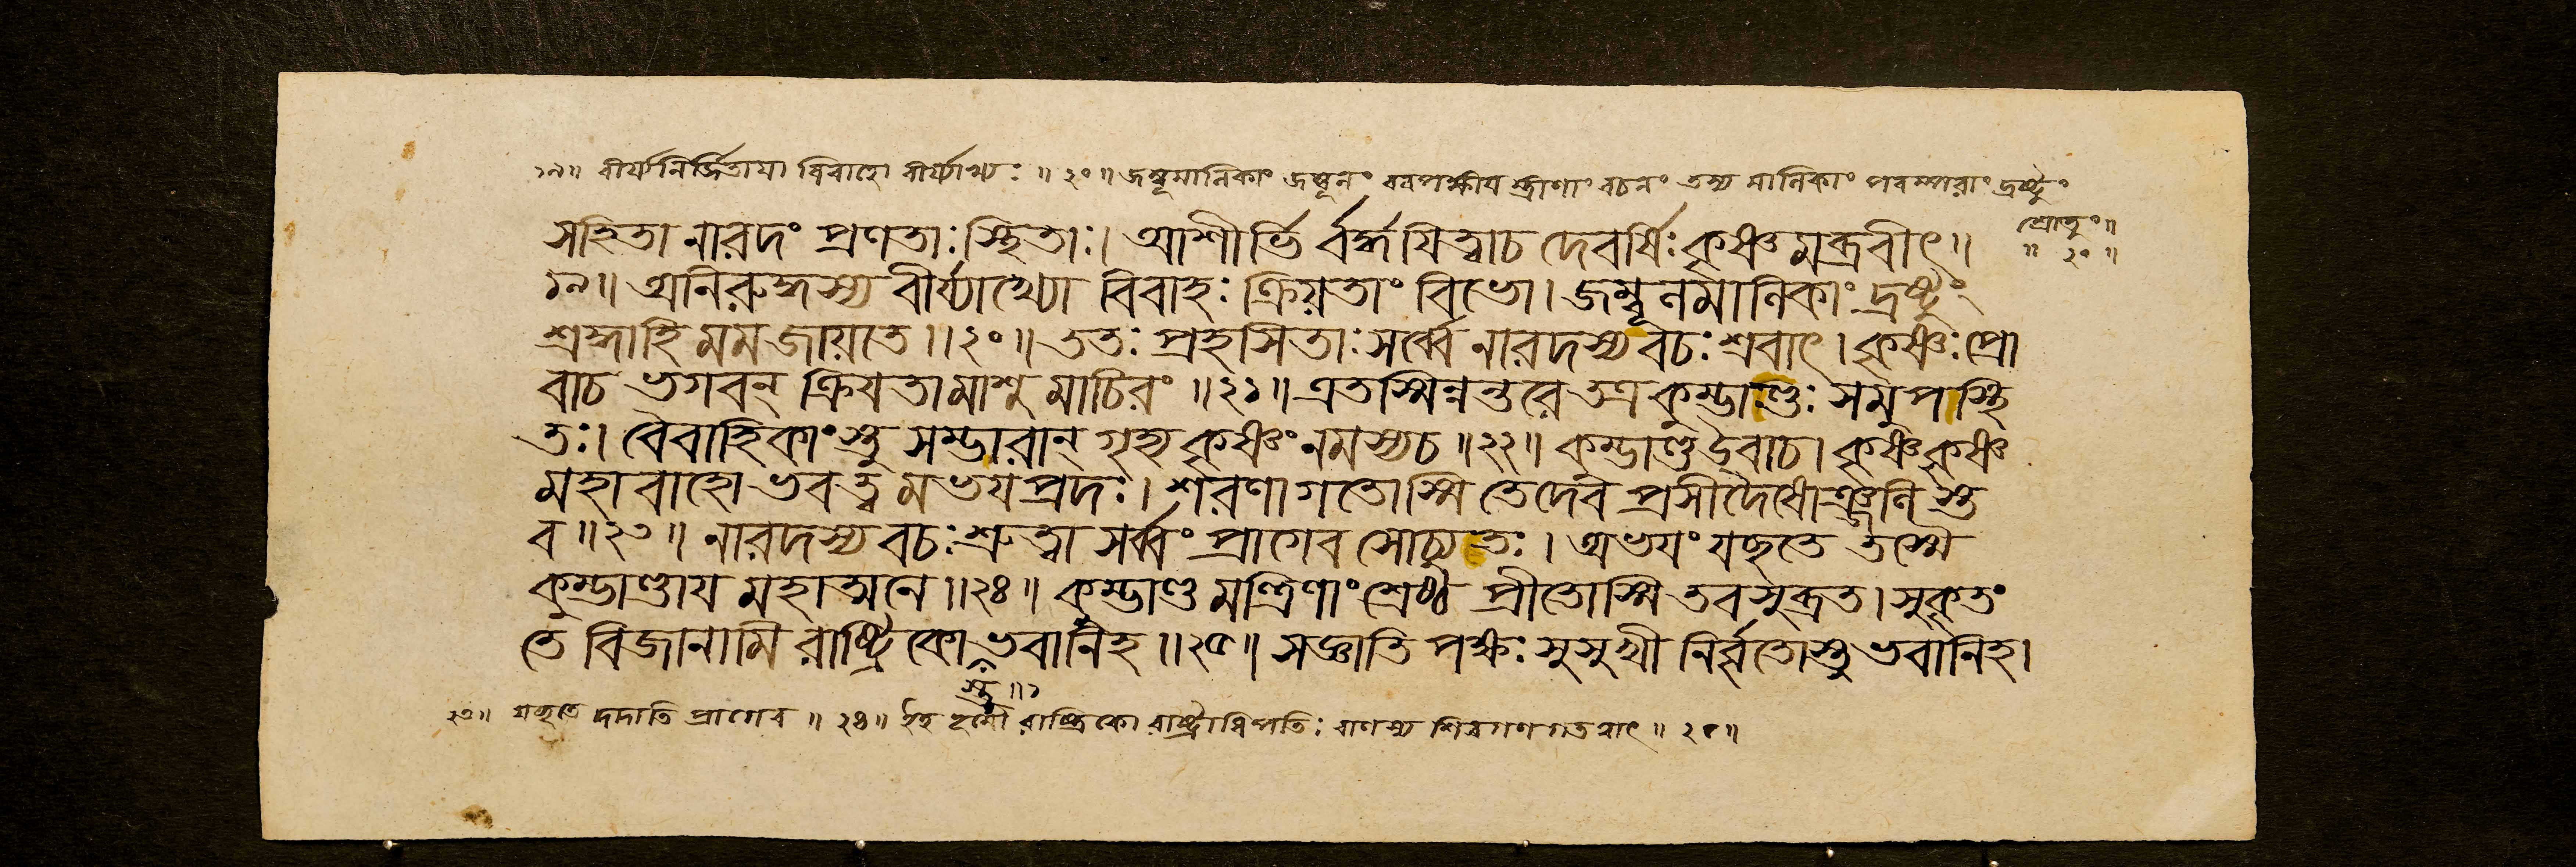 ১৯॥ বীর্য্যনির্জ্জিতাযা বিবাহো বীর্য্যাখ্যঃ ॥ ২০॥ জম্বূমানিকাং জম্বূনং বরপক্ষীয স্ত্রীণাং বচনং তস্য মানিকাং পরম্পরাং দ্রষ্টুং
শ্রোতুং॥
॥ ২০॥
সহিতা নারদং প্রণতাঃ স্থিতাঃ। আশীর্ভি র্বর্দ্ধযিত্বাচ দেবর্ষিঃ কৃষ্ণ মব্রবীৎ॥
১৯॥ অনিরুদ্ধস্য বীর্য্যাখ্যো বিবাহঃ ক্রিয়তাং বিভো। জম্বূনমানিকাং দ্রষ্টুং
শ্রদ্ধাহি মমজায়তে॥২০॥ ততঃ প্রহসিতাঃ সর্ব্বে নারদস্য বচঃ শ্রবাৎ। কৃষ্ণঃ প্রো
বাচ ভগবন্ ক্রিযতামাশু মাচিরং॥২১॥ এতস্মিন্নন্তরে তত্র কুম্ভাণ্ডঃ সমুপস্থি
তঃ। বৈবাহিকাংস্তু সম্ভারান্ গৃহ্য কৃষ্ণং নমস্যচ॥২২॥ কুম্ভাণ্ড উবাচ। কৃষ্ণ কৃষ্ণ
মহাবাহো ভবত্ব মভযপ্রদঃ। শরণাগতোস্মি তেদেব প্রসীদৈষোঞ্জলি স্ত
ব॥২৩॥ নারদস্য বচঃ শ্রুত্বা সর্ব্বং প্রাগেব সোচ্যুতঃ। অভযং যচ্ছতে তস্মৈ
কুম্ভাণ্ডায মহাত্মনে॥২৪॥ কুম্ভাণ্ড মন্ত্রিণাং শ্রেষ্ঠ প্রীতোস্মি তবসুব্রত। সুকৃতং
তে বিজানামি রাষ্ট্রিকো ভবানিহ॥২৫॥ সজ্ঞাতি পক্ষঃ সুসুখী নির্বৃতোস্তু ভবানিহ।
স্তু॥১
২৩॥ যচ্ছতে দদাতি প্রাগেব॥ ২৪॥ ইহ রাষ্ট্রিকো রাষ্ট্রাধিপতিঃ বাণস্য শিবগণ গতবাৎ॥ ২৫॥